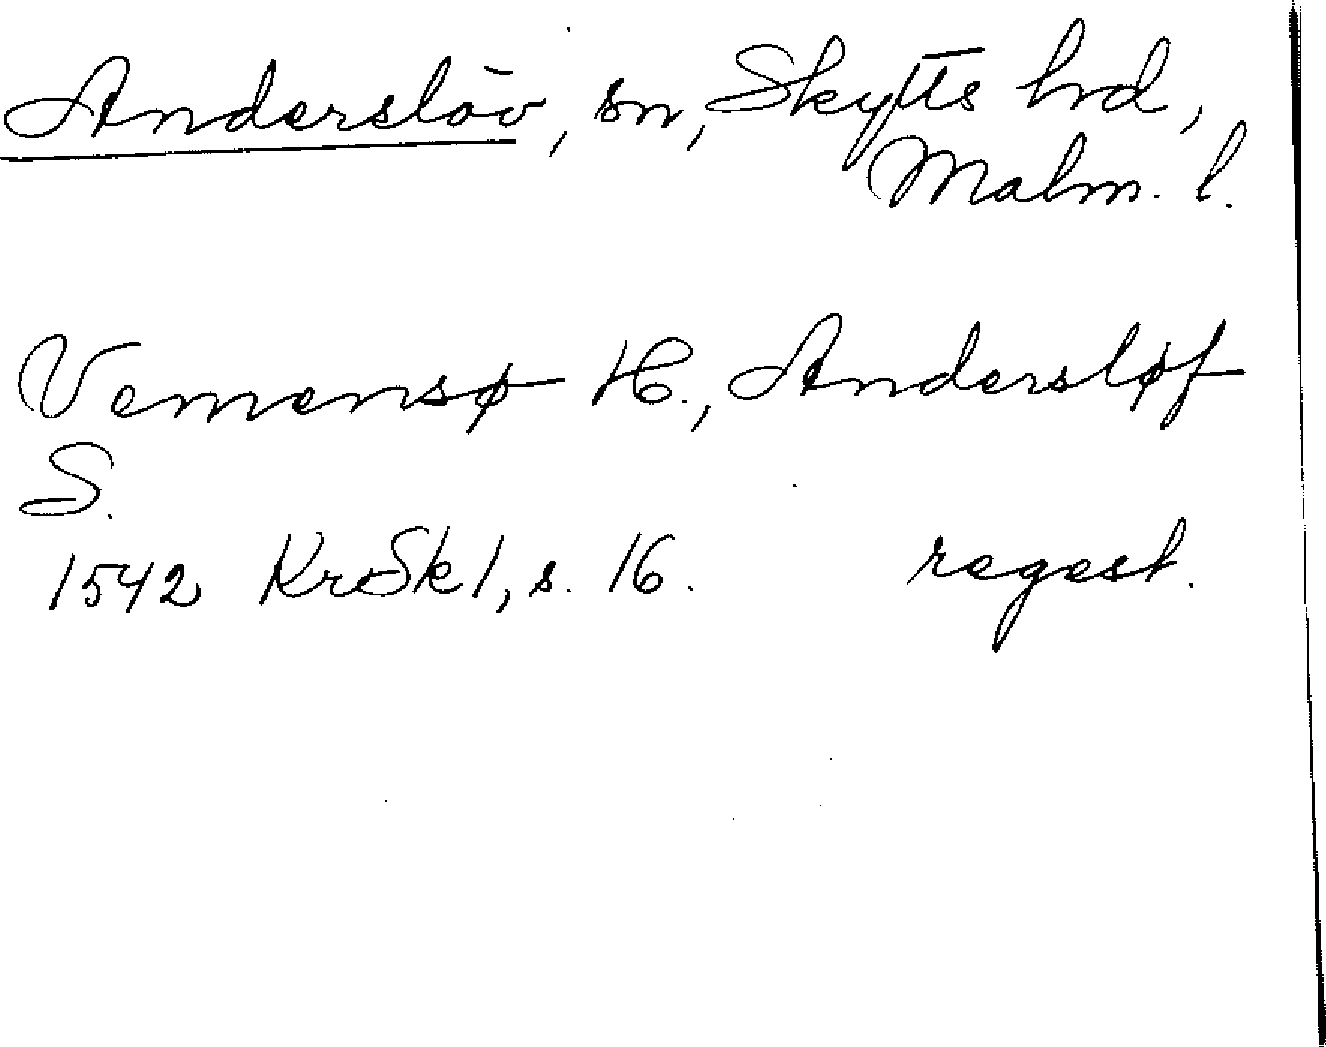 Anderslöv, sn, Skytts hrd,
Malm. l.
Vemensø H., Andersløf
S.
1542 KrSk 1, s. 16. regest.